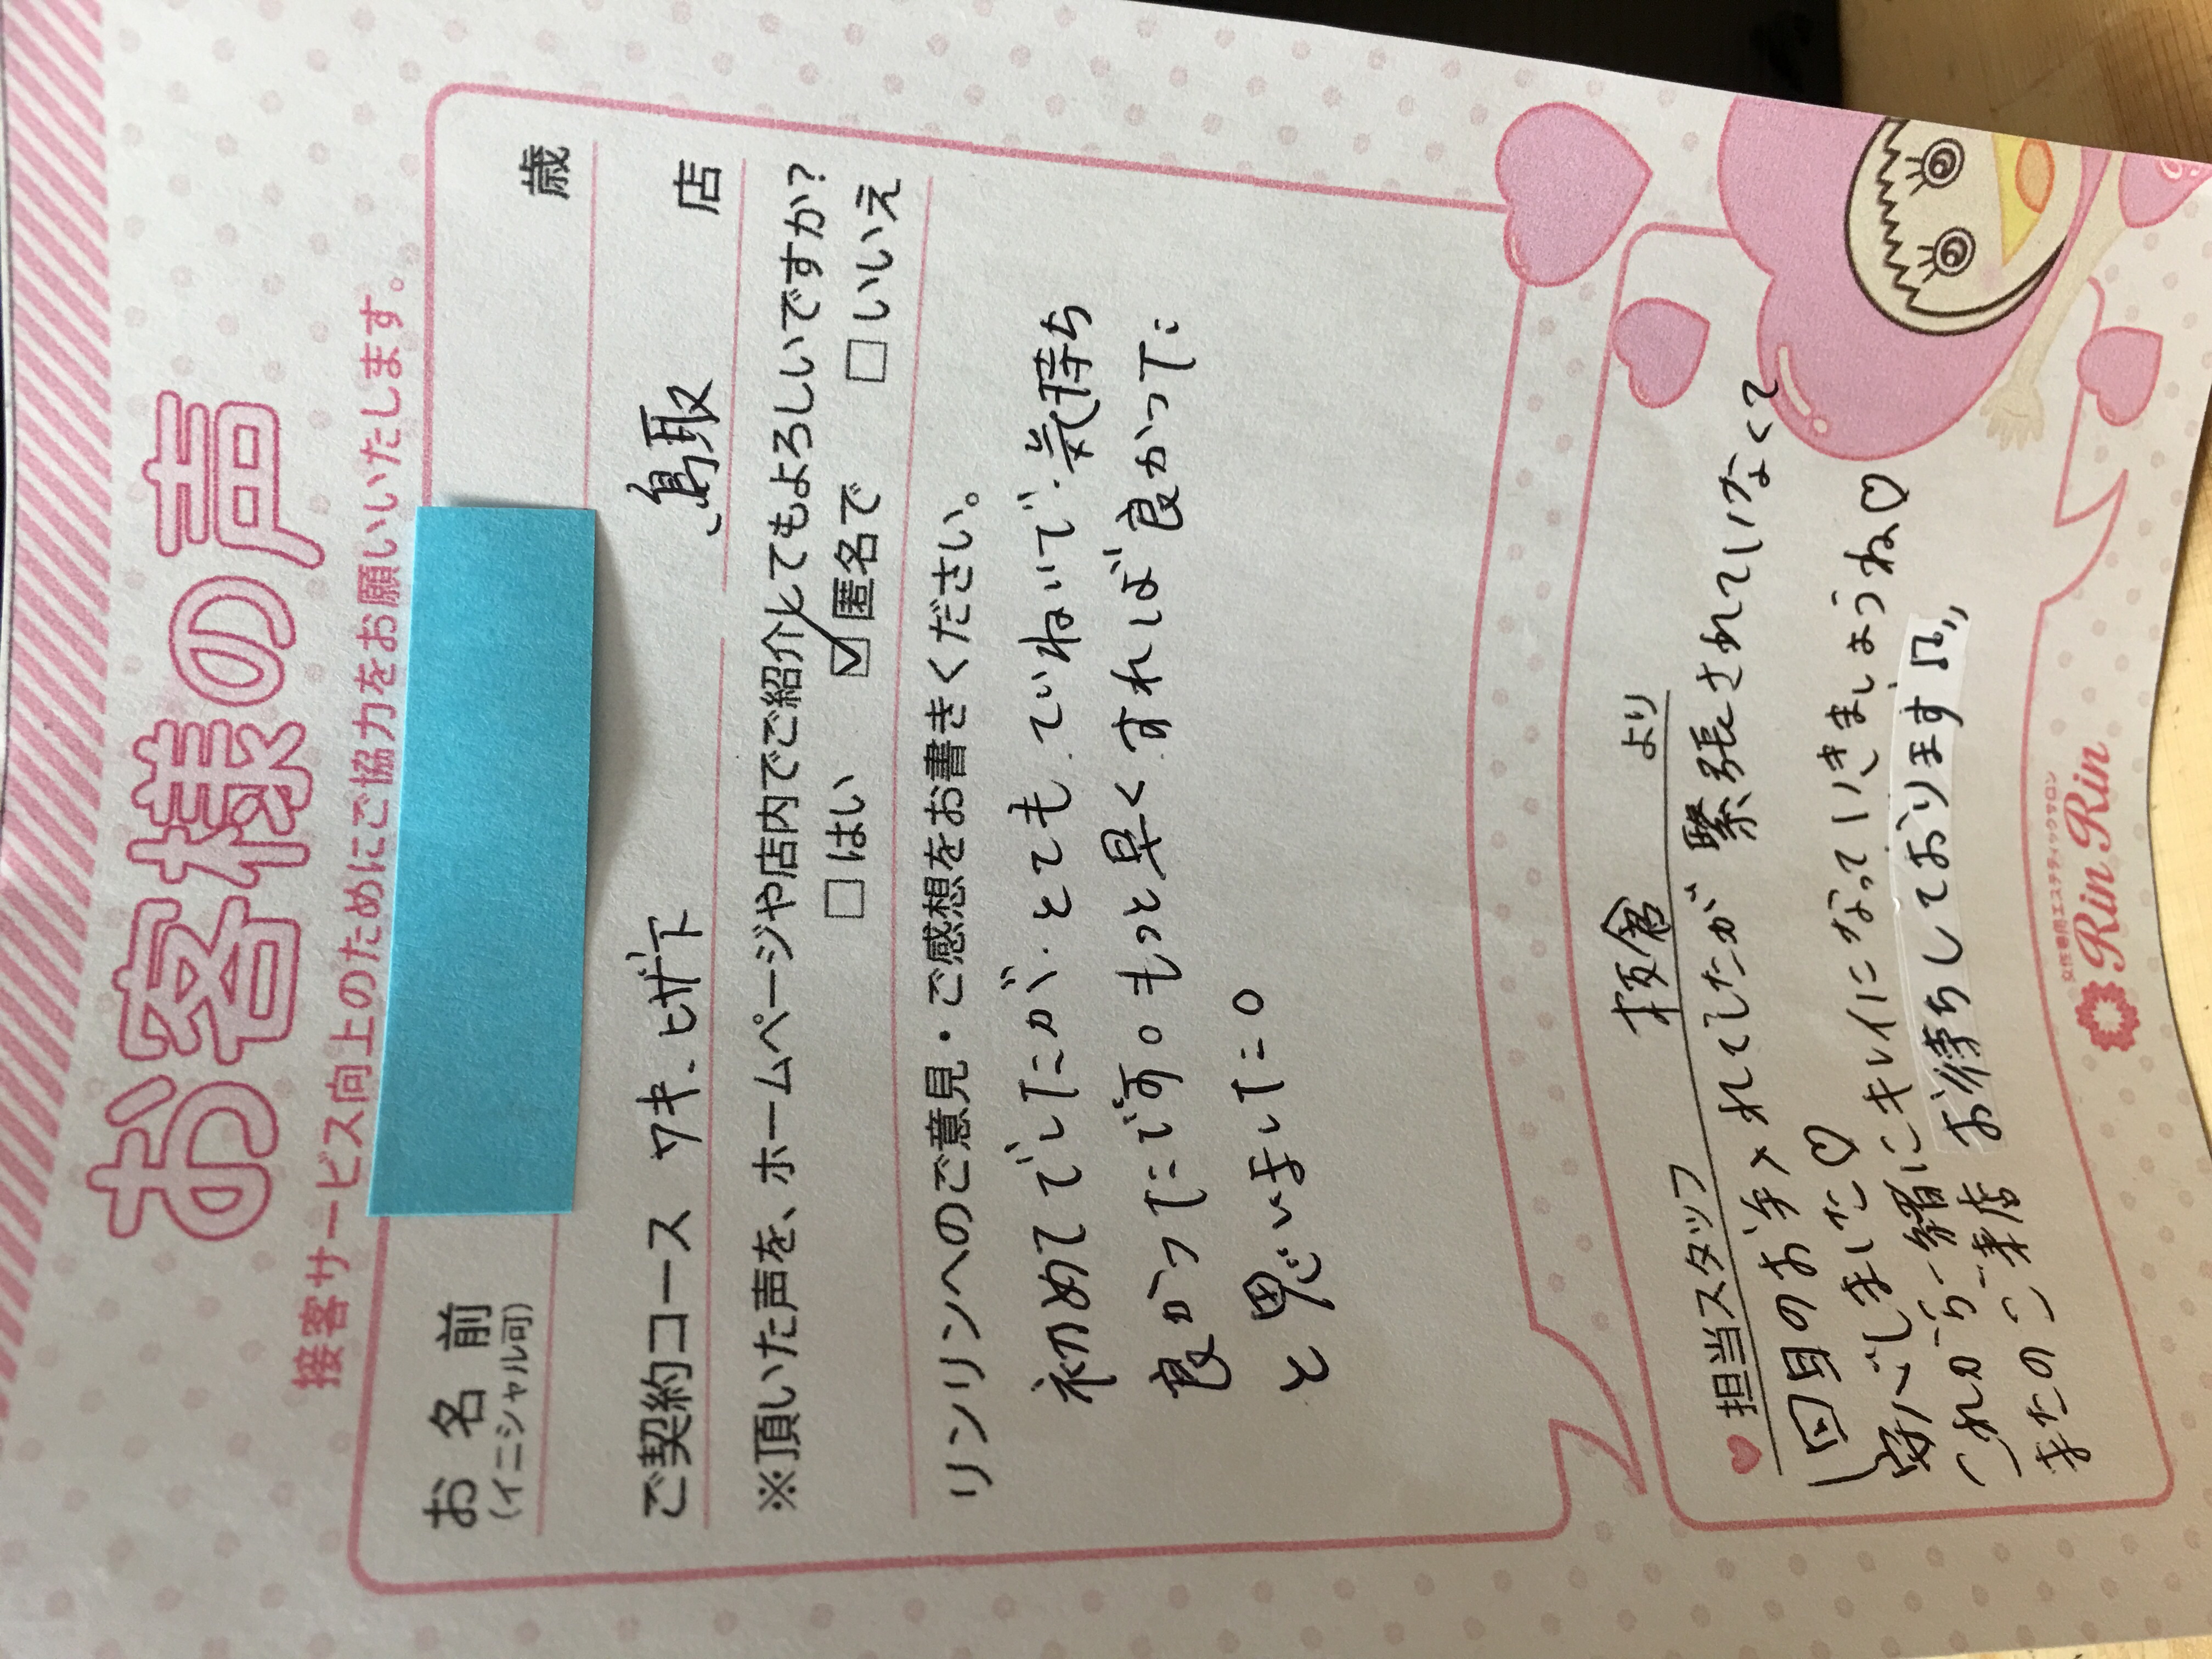 お客様の声
接客サービス向上のためにご協力をお願いいたします。
お名前
(イニシャル可)
歳
ご契約コース ワキ、ヒザ下 鳥取 店
※頂いた声を、ホームページや店内でご紹介してもよろしいですか?
□はい ☑匿名で □いいえ
リンリンへのご意見・ご感想をお書きください。
初めてでしたが、とても、ていねいで、気持ち
良かったです。もっと早くすれば良かった
と思いました。
♥担当スタッフ 板倉 より
1回目のお手入れでしたが緊張されていなくて
安心しました♡
これから一緒にキレイになっていきましょうね♡
またのご来店お待ちしております♫
女性専用エステティックサロン
Rin Rin